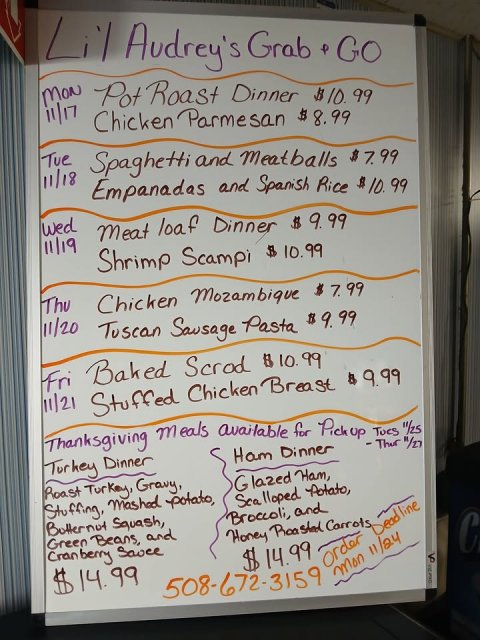 Li'l Audrey's Grab & GO
Mon 11/17
Pot Roast Dinner $10.99
Chicken Parmesan $8.99
Tue 11/18
Spaghetti and Meatballs $7.99
Empanadas and Spanish Rice $10.99
Wed 11/19
Meat loaf Dinner $9.99
Shrimp Scampi $10.99
Thu 11/20
Chicken Mozambique $7.99
Tuscan Sausage Pasta $9.99
Fri 11/21
Baked Scrod $10.99
Stuffed Chicken Breast $9.99
Thanksgiving Meals available for Pickup Tues 11/25
- Thur 11/27
Turkey Dinner
Roast Turkey, Gravy,
Stuffing, Mashed Potato,
Butternut Squash,
Green Beans, and
Cranberry Sauce
$14.99
Ham Dinner
Glazed Ham,
Scalloped Potato,
Broccoli, and
Honey Roasted Carrots
$14.99
Order Deadline
Mon 11/24
508-672-3159